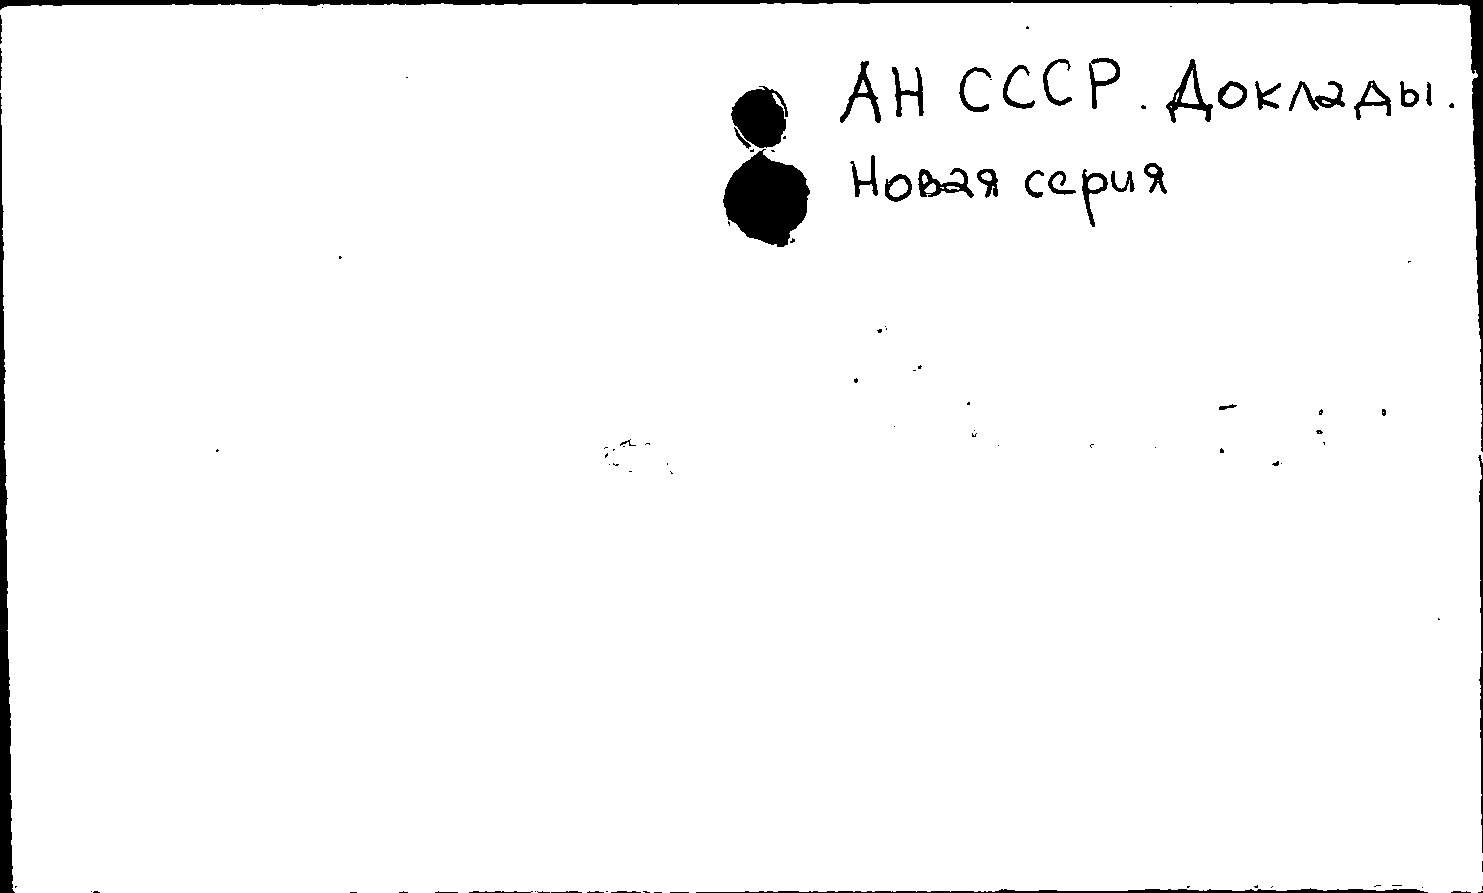 АН СССР. Доклады.
Новая серия